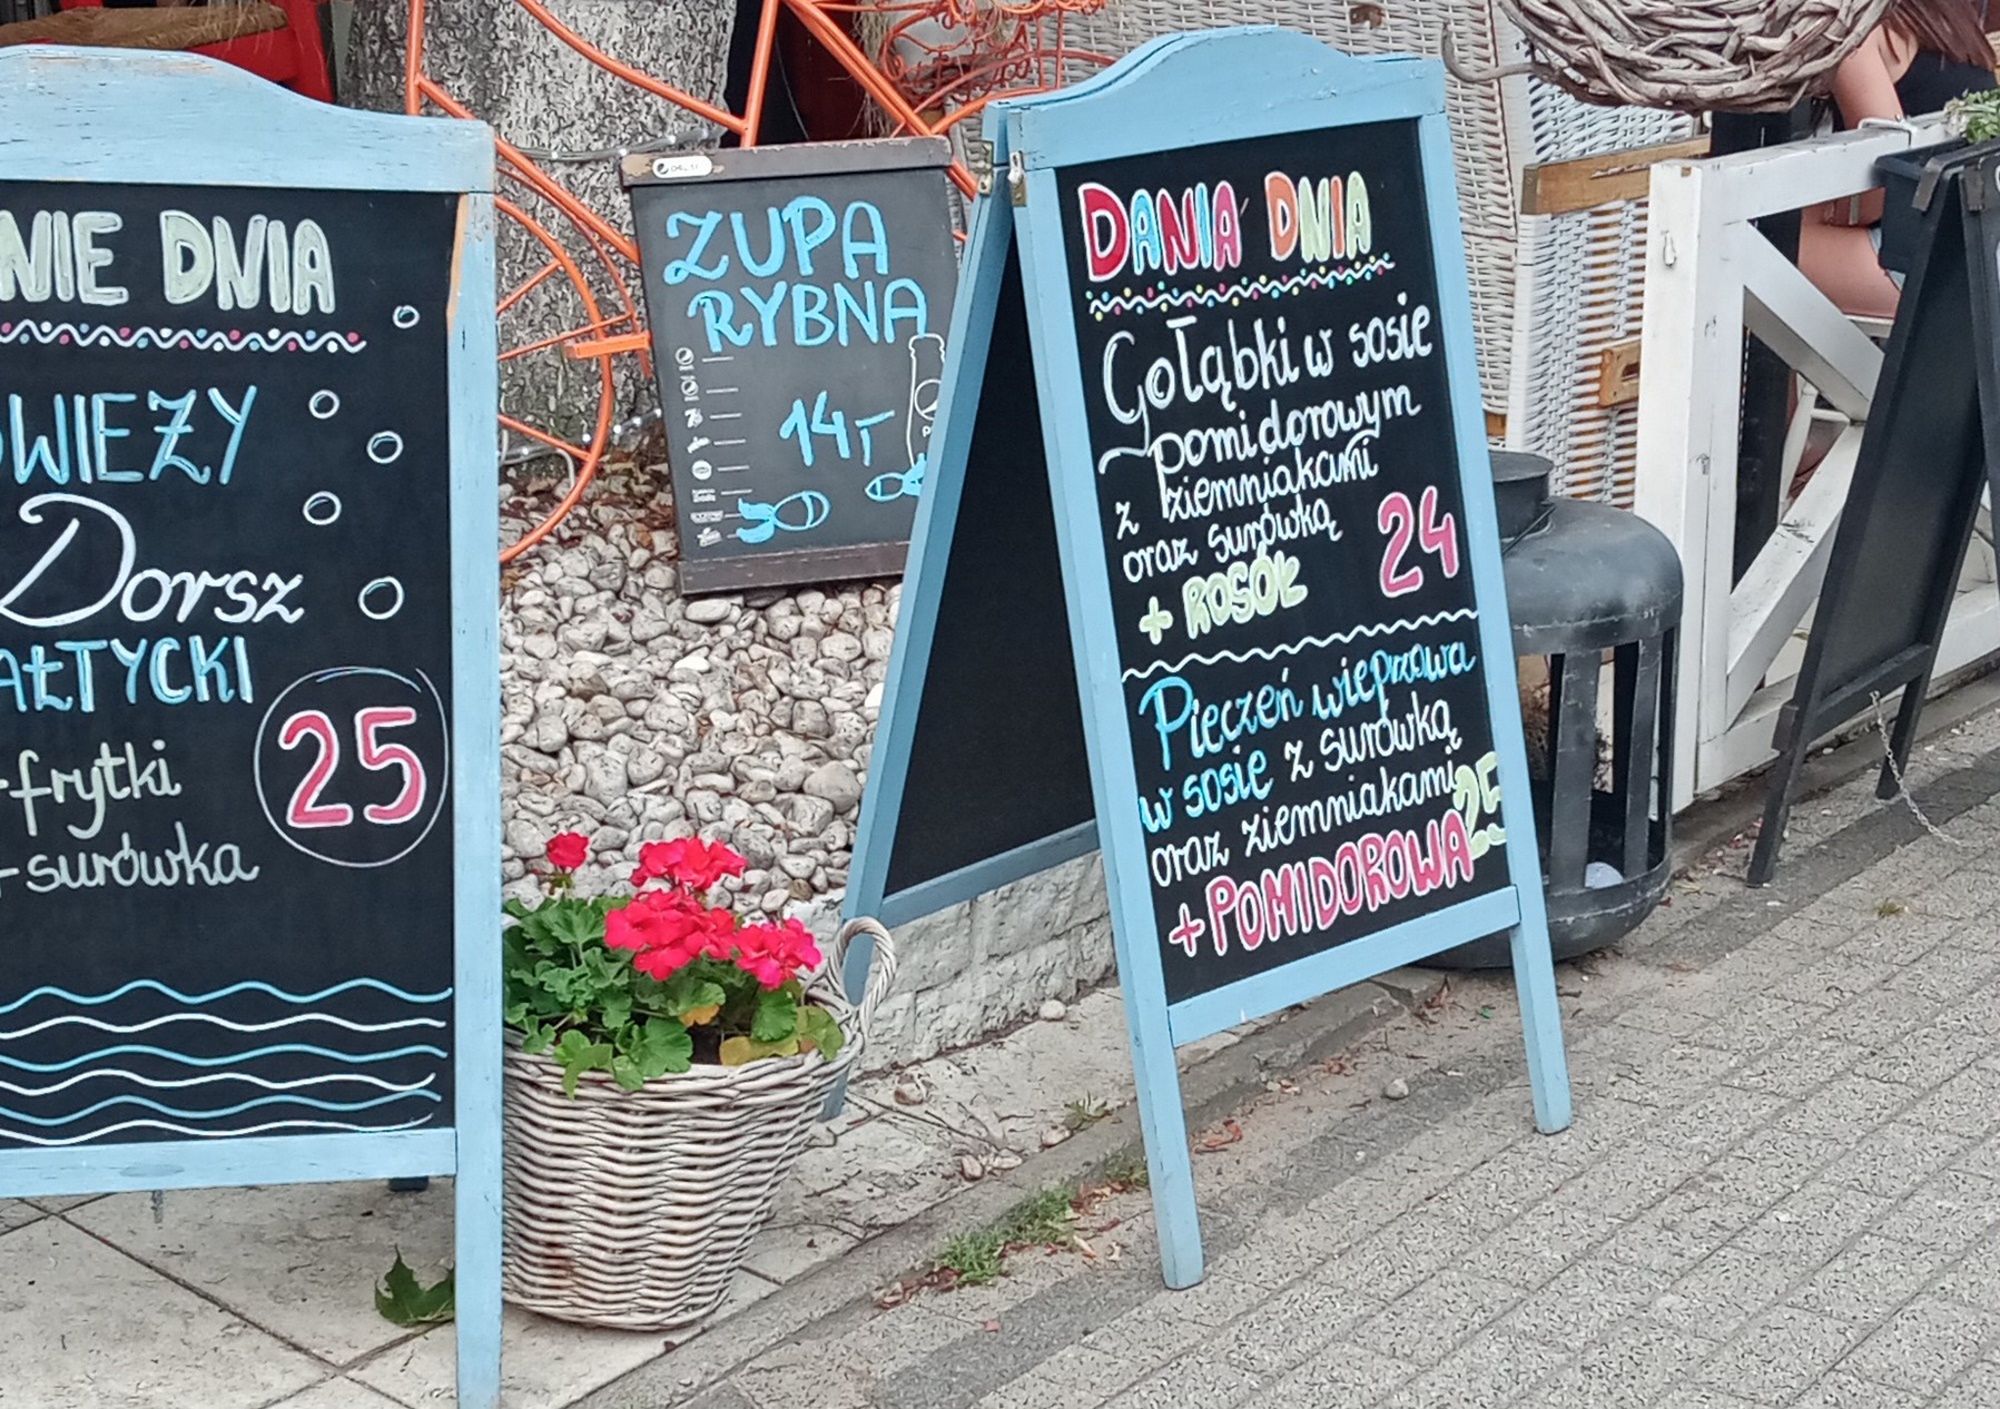 NIE DNIA
WIEŻY
Dorsz
AŁTYCKI
frytki
25
+surówka
ZUPA
RYBNA
14,-
DANIA DNIA
Gołąbki w sosie
pomidorowym
z ziemniakami
oraz surówką
24
+ ROSÓŁ
Pieczeń wieprzowa
w sosie z surówką
oraz ziemniakami 25
+ POMIDOROWA